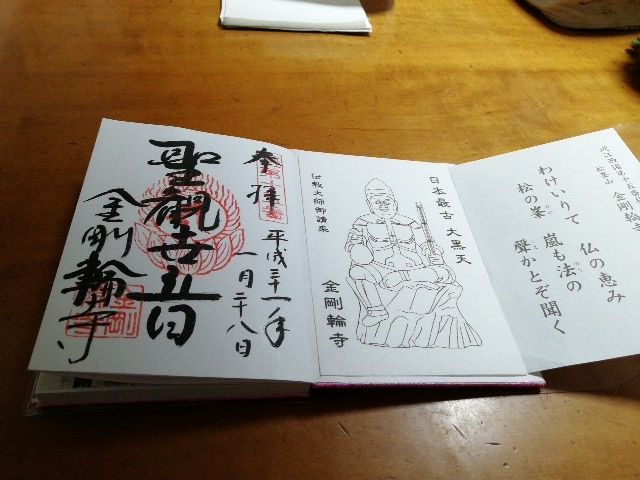 近江西国第十五番
松峯山 金剛輪寺
わけいりて 仏の恵み
松の峯 嵐も法の
聲かとぞ聞く
日本最古 大黒天
伝教大師御請来
金剛輪寺
奉拝 平成三十一年
一月二十八日
聖観世音
金剛輪寺